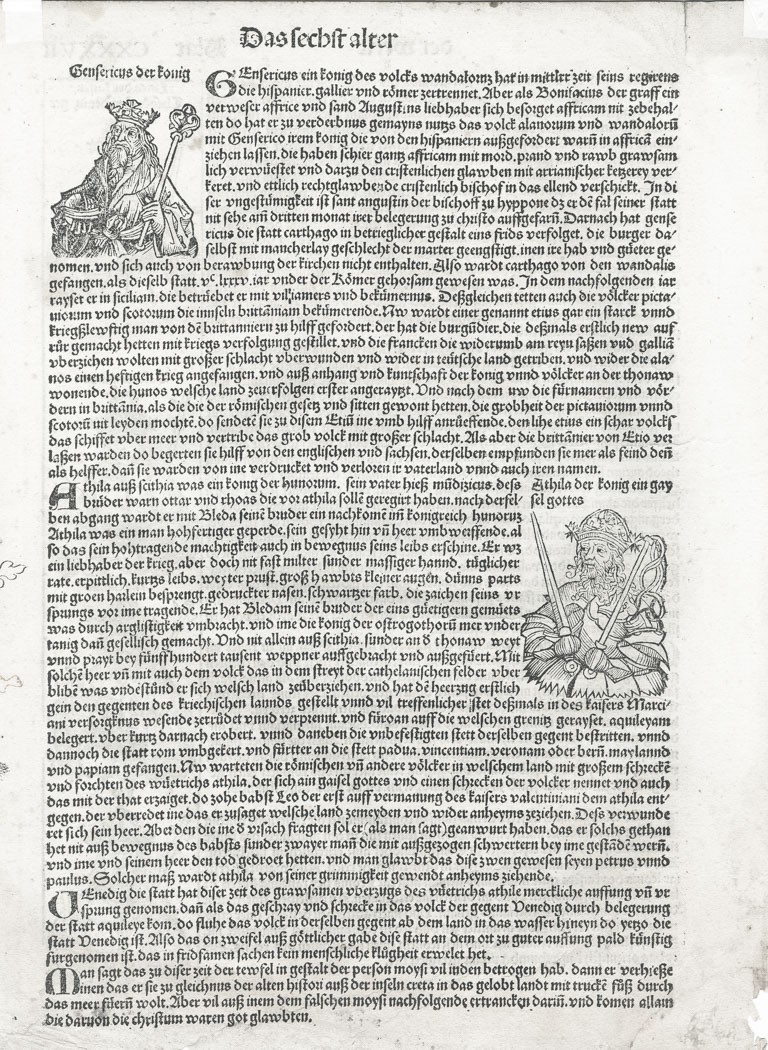 Das sechst alter
Gensericus der konig
GEnsericus ein konig des volcks wandalornz hat in mittlrr zeit seins regirens
die hispanier. gallier vnd römer zertrennet. Aber als Bonifacius der graff ein
verweser affrice vnd sand Augustins liebhaber sich besorget affricam nit zebehal-
ten do hat er zu verderbnus gemayns nutzs das volck alanorum vnd wandalorū
mit Genserico irem konig die von den hispaniern außgefordert warn̄ in affricā ein-
ziehen lassen. die haben schier gantz affricam mit mord. prand vnd rawb grawsam
lich verwüestet vnd darzu den cristenlichen glawben mit arrianischer ketzerey ver-
keret. vnd ettlich rechtglawbende cristenlich bischof in das ellend verschickt. In di
ser vngestümigkeit ist sant augustin der bischoff zu hyppone dz er dē fal seiner statt
nit sehe am̄ dritten monat irer belegerung zu christo auffgefarn̄. Darnach hat gense
ricus die statt carthago in betrieglicher gestalt eins frids verfolget. die burger da-
selbst mit mancherlay geschlecht der marter geengstigt. inen ire hab vnd güeter ge-
nomen. vnd sich auch von berawbung der kirchen nicht enthalten. Also wardt carthago von den wandalis
gefangen. als dieselb statt. vᶜ. lxxxv. iar vnder der Römer gehorsam gewesen was. In dem nachfolgenden iar
rayset er in siciliam. die betrüebet er mit vil iamers vnd bekümernus. Deßgleichen tetten auch die völcker picta-
uiorum vnd scotorum die innseln brittāniam bekümerende. Nw wardt einer genannt etius gar ein starck vnnd
kriegßlewftig man von dē brittanniern zu hilff gefordert. der hat die burgūdier. die deßmals erstlich new auf
rür gemacht hetten mit kriegs verfolgung gestillet. vnd die francken die widerumb am reyn saßen vnd galliā
vberziehen wolten mit großer schlacht vberwunden vnd wider in teütsche land getriben. vnd wider die ala-
nos einen heftigen krieg angefangen. vnd auß anhang vnd kuntschaft der konig vnnd völcker an der thonaw
wonende. die hunos welsche land zeuerfolgen erster angeraytzt. Vnd nach dem nw die fürnamern vnd vör-
dern in brittānia. als die die der römischen gesetz vnd sitten gewont hetten. die grobheit der pictauiorum vnnd
scotorū nit leyden mochtē. do sendetē sie zu disem Etiū ine vmb hilff anrüeffende. den lihe etius ein schar volcks
das schiffet vber meer vnd vertribe das grob volck mit großer schlacht. Als aber die brittānier von Etio ver
laßen warden do begerten sie hilff von den englischen vnd sachsen. derselben empfunden sie mer als feind den̄
als helffer. dan̄ sie warden von ine verdrucket vnd verloren ir vaterland vnnd auch iren namen.
Athila der konig ein gay
sel gottes
AThila auß scithia was ein konig der hunorum. sein vater hieß mūdizicus. dess
brüder warn ottar vnd rhoas die vor athila sollē geregirt haben. nach derfel-
ben abgang wardt er mit Bleda seinē bruder ein nachkomē im̄ konigreich hunorūz
Athila was ein man hohfertiger geperde. sein gesyht hin vn̄ heer vmbwerffende. al
so das sein hohtragende machtigkeit auch in bewegnus seins leibs erschine. Er wz
ein liebhaber der krieg. aber doch nit fast milter sunder massiger hannd. tüglicher
rate. erpittlich. kurtzs leibs. weyter prust. groß hawbts kleiner augen. dünns parts
mit groen harlein besprengt. gedruckter nasen. schwartzer farb. die zaichen seins vr
sprungs vor ime tragende. Er hat Bledam seinē bruder der eins güetigern gemüets
was durch arglistigkeit vmbracht. vnd ime die konig der ostrogothorū mer vnder
tanig dan̄ gesellisch gemacht. Vnd nit allein auß scithia. sunder an ď thonaw weyt
vnnd prayt bey fünffhundert tausent weppner auffgebracht vnd außgefüert. Mit
solchē heer vn̄ mit auch dem volck das in dem streyt der cathelanischen felder vber
blibē was vndestūnd er sich welsch land zeüberziehen. vnd hat dē heerzug erstlich
gein den gegenten des kriechischen lannds gestellt vnnd vil treffenlicher stet deßmals in des kaisers Marci-
ani versorgknus wesende zerrüdet vnnd verprennt. vnd füroan auff die welschen grenitz gerayset. aquileyam
belegert. vber kurtz darnach erobert. vnnd daneben die vnbefestigten stett derselben gegent bestritten. vnnd
dannoch die statt rom vmbgekert. vnd fürtter an die stett padua. vincentiam. veronam oder bern̄. maylannd
vnd papiam gefangen. Nw warteten die römischen vn̄ andere völcker in welschem land mit großem schreckē
vnd forchten des wüetrichs athila. der sich ain gaisel gottes vnd einen schrecken der volcker nennet vnd auch
das mit der that erzaiget. do zohe babst Leo der erst auff vermanung des kaisers valentiniani dem athila ent-
gegen. der vberredet ine das er zusaget welsche land zemeyden vnd wider anheyms zeziehen. Dess verwunde
ret sich sein heer. Aber den die ine ď vrsach fragten sol er (als man sagt) geanwurt haben. das er solchs gethan
het nit auß bewegnus des babsts sunder zwayer man̄ die mit außgezogen schwertern bey ime gestādē wern̄.
vnd ime vnd seinem heer den tod gedroet hetten. vnd man glawbt das dise zwen gewesen seyen petrus vnnd
paulus. Solcher maß wardt athila von seiner grimmigkeit gewendt anheyms ziehende.
VEnedig die statt hat diser zeit des grawsamen vberzugs des wüetrichs athile merckliche auffung vn̄ vr
sprung genomen. dan̄ als das geschray vnd schrecke in das volck der gegent Venedig durch belegerung
der statt aquileye kom. do fluhe das volck in derselben gegent ab dem land in das wasser hineyn do yetzo die
statt Venedig ist. Also das on zweifel auß götlicher gabe dise statt an dem ort zu guter auffung pald künftig
fürgenomen ist. das in fridsamen sachen kein menschliche klügheit erwelet het.
MAn sagt das zu diser zeit der tewfel in gestalt der person moysi vil iuden betrogen hab. dann er verhieße
inen das er sie zu gleichnus der alten histori auß der inseln creta in das gelobt landt mit truckē füß durch
das meer füern̄ wolt. Aber vil auß inem dem falschen moysi nachfolgende ertrancken darin̄. vnd komen allain
die daruon die christum waren got glawbten.